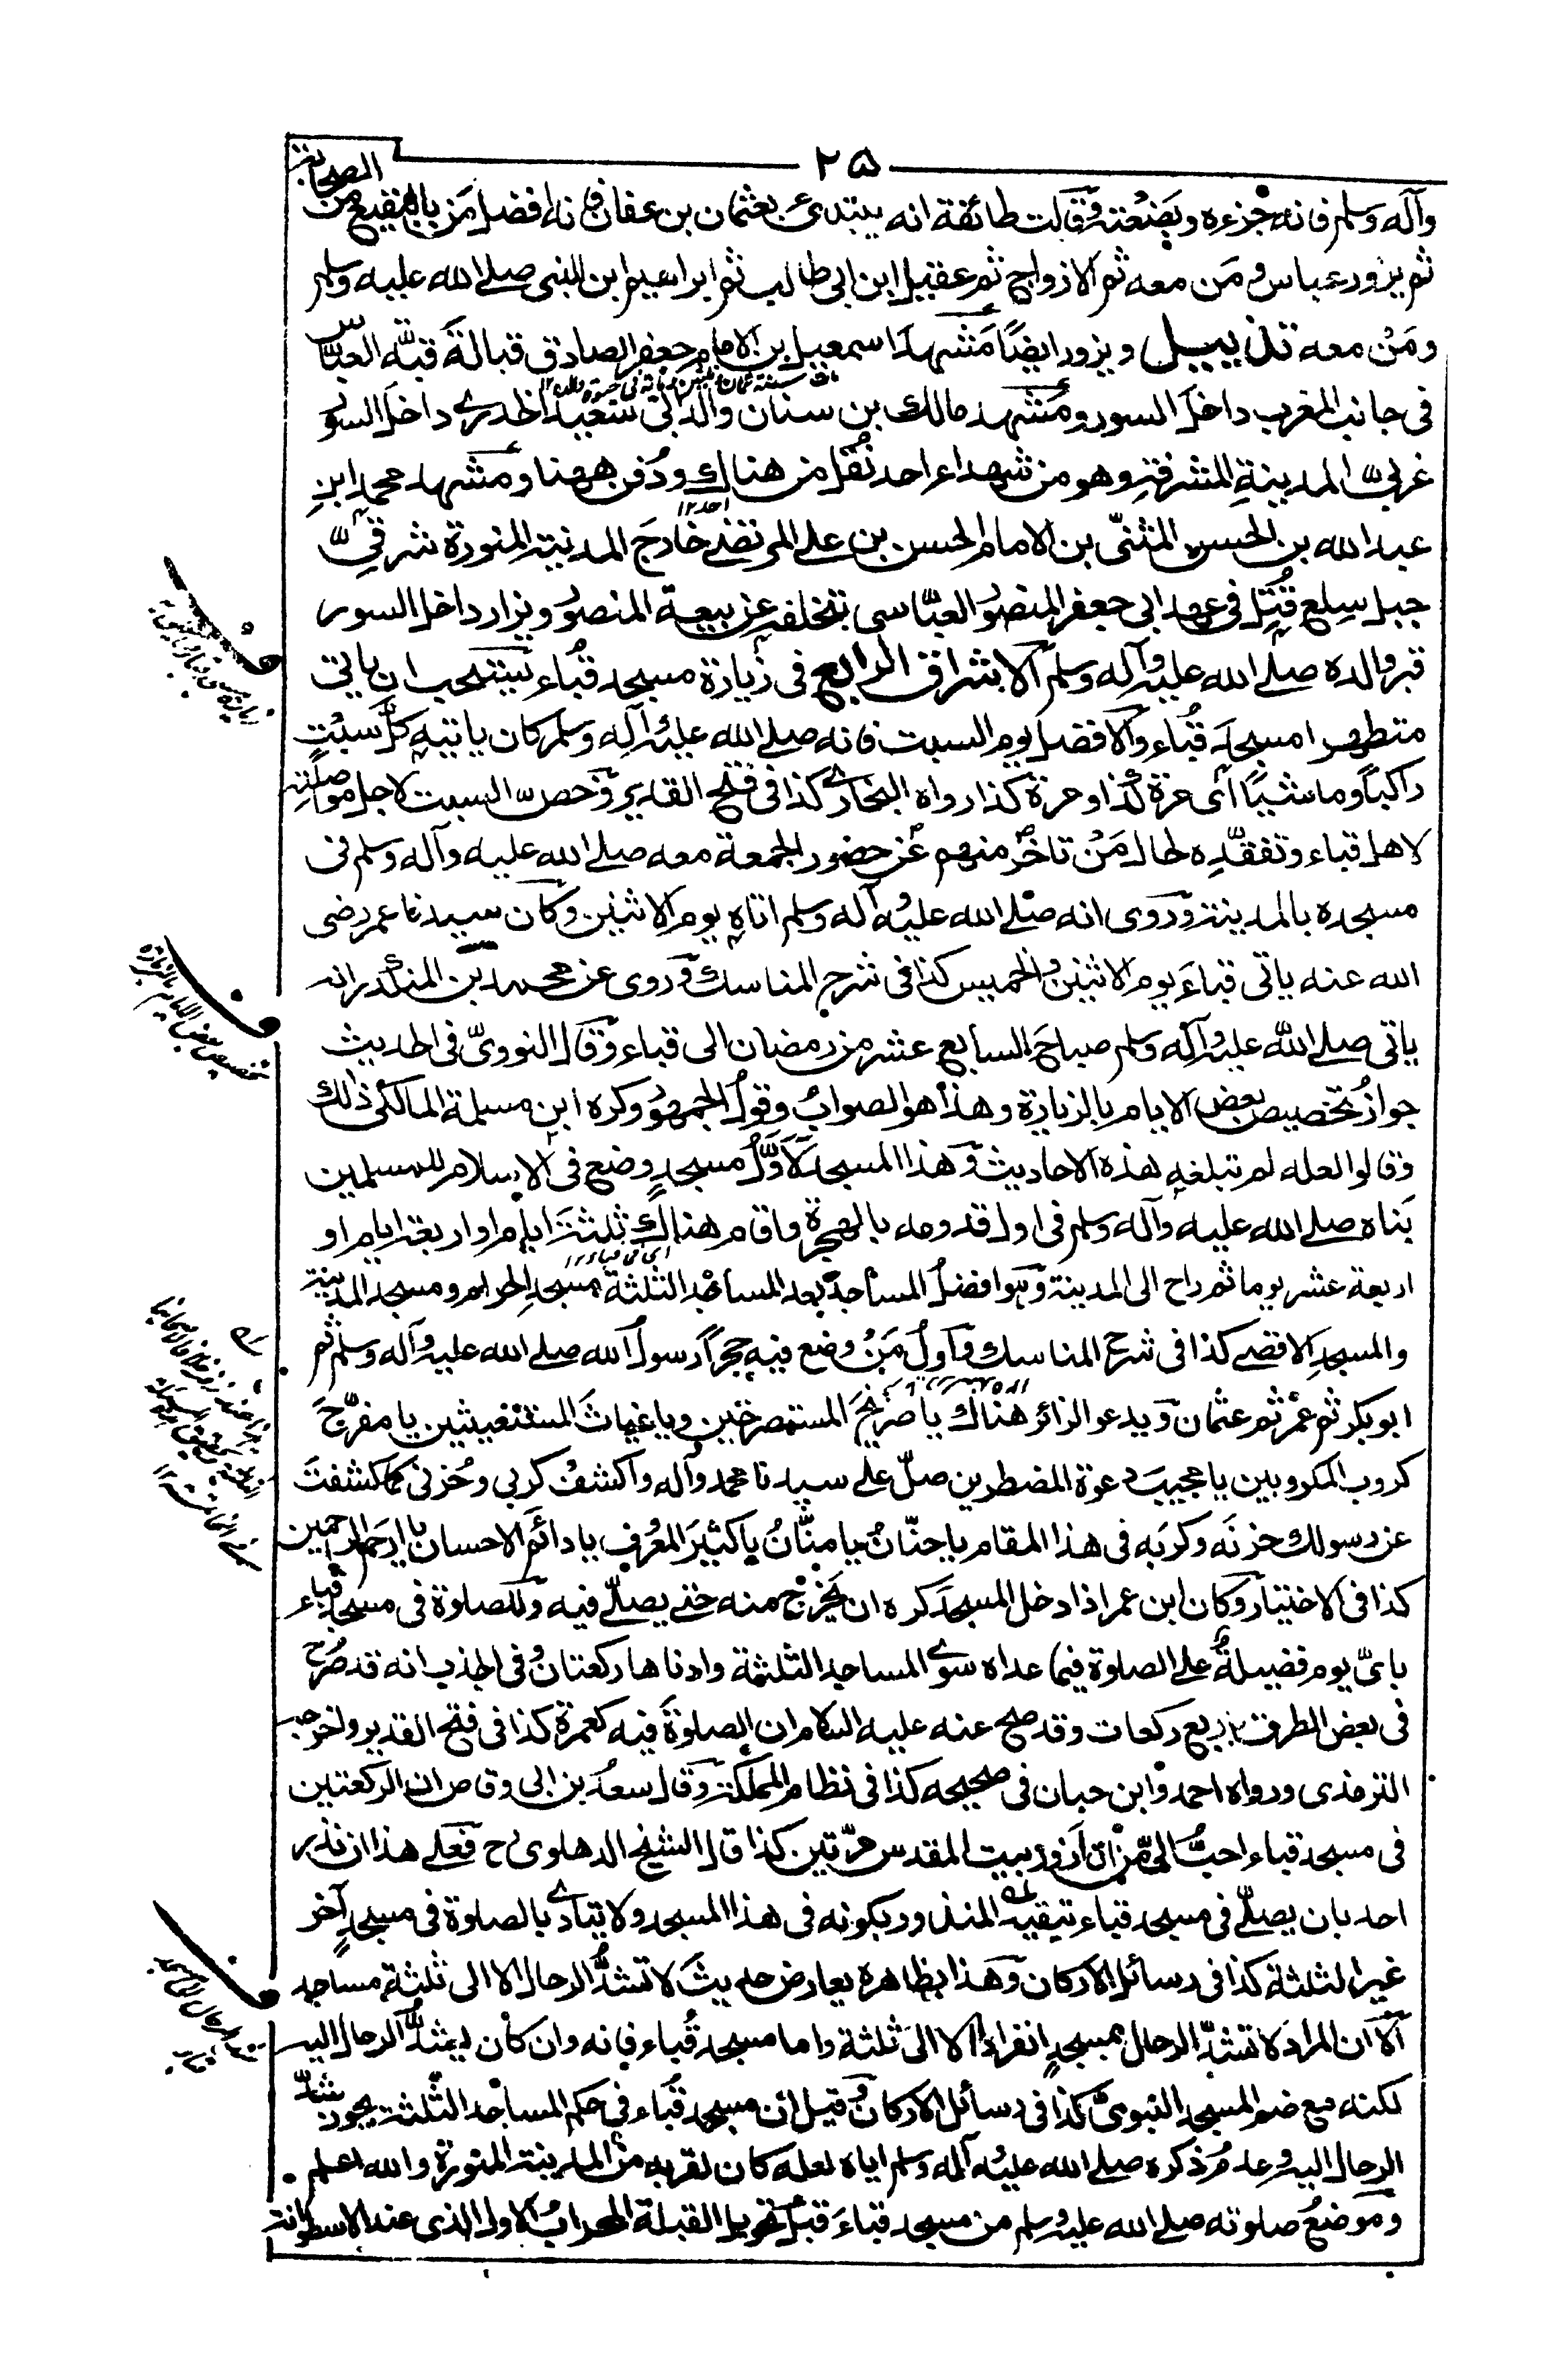 ٢٥
وآله وسلم فانه جزءه وبضعته وقالت طائفة انه يبتدئ بعثمان بن عفان فانه افضل من بالبقيع من الصحابة
ثم يزور عباس ومَن معه ثم الازواج ثم عقيل ابن ابى طالب ثم ابراهيم ابن النبى صلے الله عليه وسلم
ومَنْ معه تذييل ويزور ايضًا مَشهد اسمعيل بن الامام جعفر الصادق قبالةَ قبّة العبّاس
فى جانب المغرب داخلَ السور ومَشهد مالك بن سنان والد ابى سعيد الخدرے داخلَ السور
غربىّ المدينةِ المشرفةِ وهو من شهداء احد نُقل من هناك ودُفن ههنا ومَشهد محمد ابنِ
احد ١٢
عبد الله بن الحسن المثنّى بن الامام الحسن بن علے المرتضے خارجَ المدينة المنورة شرقىّ
جبل سلع قُتِل فى عهد ابى جعفر المنصور العبّاسى بتخلفه عن بيعة المنصور ويزار داخل السور
قبر والده صلے الله عليه وآله وسلم الاشراق الرابع فى زيارة مسجد قُباء يستحب ان ياتى
متطهرا مسجد قُباء والافضل يوم السبت فانه صلے الله عليه وآله وسلم كان ياتيه كلَّ سبْتٍ
راكباً وماشيًا اى مرة كذا ومرة كذا رواه البخارے كذا فى فتح القدير وخصّ السبت لاجل مواصلته
لاهل قباء وتفقّده لحال مَنْ تاخّر منهم عن حضور الجمعة معه صلے الله عليه وآله وسلم فى
مسجده بالمدينة وروى انه صلے الله عليه وآله وسلم اتاه يوم الاثنين وكان سيدنا عمر رضى
الله عنه ياتى قباءَ يوم الاثنين والخميس كذا فى شرح المناسك وروى عن محمد بن المنكدر انه
ياتى صلے الله عليه وآله وسلم صباحَ السابع عشر من رمضان الى قباء وقال النووىّ فى الحديث
جوازُ تخصيص بعض الايام بالزيارة وهذا هو الصوابُ وقولُ الجمهور وكره ابن مسلمة المالكى ذلك
وقالوا لعله لم تبلغه هذه الاحاديث وهذا المسجد لَاَوَّلُ مسجدٍ وضع فى الاسلام للمسلمين
بَناه صلے الله عليه وآله وسلم فى اول قدومه بالهجرة واقام هناك ثلثةَ ايام او اربعة ايام او
اى فى قباء ١٢
اربعة عشر يوما ثم راح الى المدينة وهو افضلُ المساجد بعد المساجد الثلثة مسجدِ الحرام ومسجد المدينة
والمسجدِ الاقصے كذا فى شرح المناسك واولُ مَنْ وضع فيه حجراً رسولُ الله صلے الله عليه وآله وسلم ثم
ابو بكر ثم عمر ثم عثمان ويدعو الزائر هناك يا صريخَ المستصرخين ويا غياثَ المستغيثين يا مفرّجَ
كروب المكروبين يا مجيبَ دعوة المضطرين صلّ على سيدنا محمد وآله واكشفْ كربى وحُزنى كما كشفتَ
عن رسولك حزنَه وكربَه فى هذا المقام يا حنّانُ يا منّانُ يا كثيرَ المعروف يا دائمَ الاحسان يا ارحم الراحمين
كذا فى الاختيار وكان ابن عمر اذا دخل المسجد كره ان يخرج منه حتے يصلّے فيه وللصلوة فى مسجد قباء
باىّ يوم فضيلةٌ علے الصلوة فيما عداه سوے المساجد الثلثة وادناها ركعتان وفى الجذب انه قد صُرّح
فى بعض الطرق باربع ركعات وقد صح عنه عليه السلام ان الصلوةَ فيه كعمرة كذا فى فتح القدير واخرجه
الترمذى ورواه احمد وابن حبان فى صحيحه كذا فى نظام المملكة وقال سعد بن ابى وقاص ان الركعتين
فى مسجد قباء احبُّ الىّ من ان ازور بيت المقدس مرّتين كذا قال الشيخ الدهلوى رح فعلے هذا ان نذر
احد بان يصلّے فى مسجد قباء تيقيد المنذور بكونه فى هذا المسجد ولا يتادے بالصلوة فى مسجدٍ آخر
غيرِ الثلثة كذا فى رسائل الاركان وهذا بظاهره يعارض حديثَ لا تشدُّ الرحال الا الى ثلثة مساجد
الا ان المراد لا تشدّ الرحال بمسجدٍ انفرادا الا الى ثلثة واما مسجد قُباء فانه وان كان يشدُّ الرحال اليه
لكنه مع ضم المسجد النبوىّ كذا فى رسائل الاركان وقيل ان مسجد قُباء فى حكم المساجد الثلثة يجوز شدّ
الرحال اليه وعدمُ ذكره صلے الله عليه وآله وسلم اياه لعله كان لقربه من المدينة المنورة والله اعلم
وموضعُ صلوته صلے الله عليه وسلم من مسجد قباءَ قبل تحويل القبلة المحرابُ الاول الذى عند الاسطوانة
تخصيص بعض الايام بالزيارة